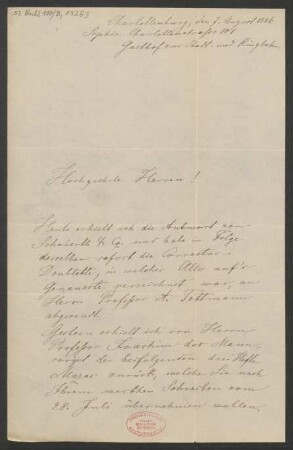 Charlottenburg, den 7. August 1886
Sophie Charlottenstrasse 101
Gasthof zur Stadt- und Ringbahn
Hochgeehrte Herren!
Heute erhielt ich die Antwort von
Schuberth & Co. und habe in Folge
derselben sofort die Correctur-
Doublette, in welcher Alles auf's
Genaueste gezeichnet war, an
Herrn Professor A. Tottmann
abgesandt.
Gestern erhielt ich von Herrn
Professor Joachim das Manu-
script der beifolgenden drei Hefte
Mazas zurück, welche Sie nach
Ihrem werthen Schreiben vom
28. Juli übernehmen wollen.